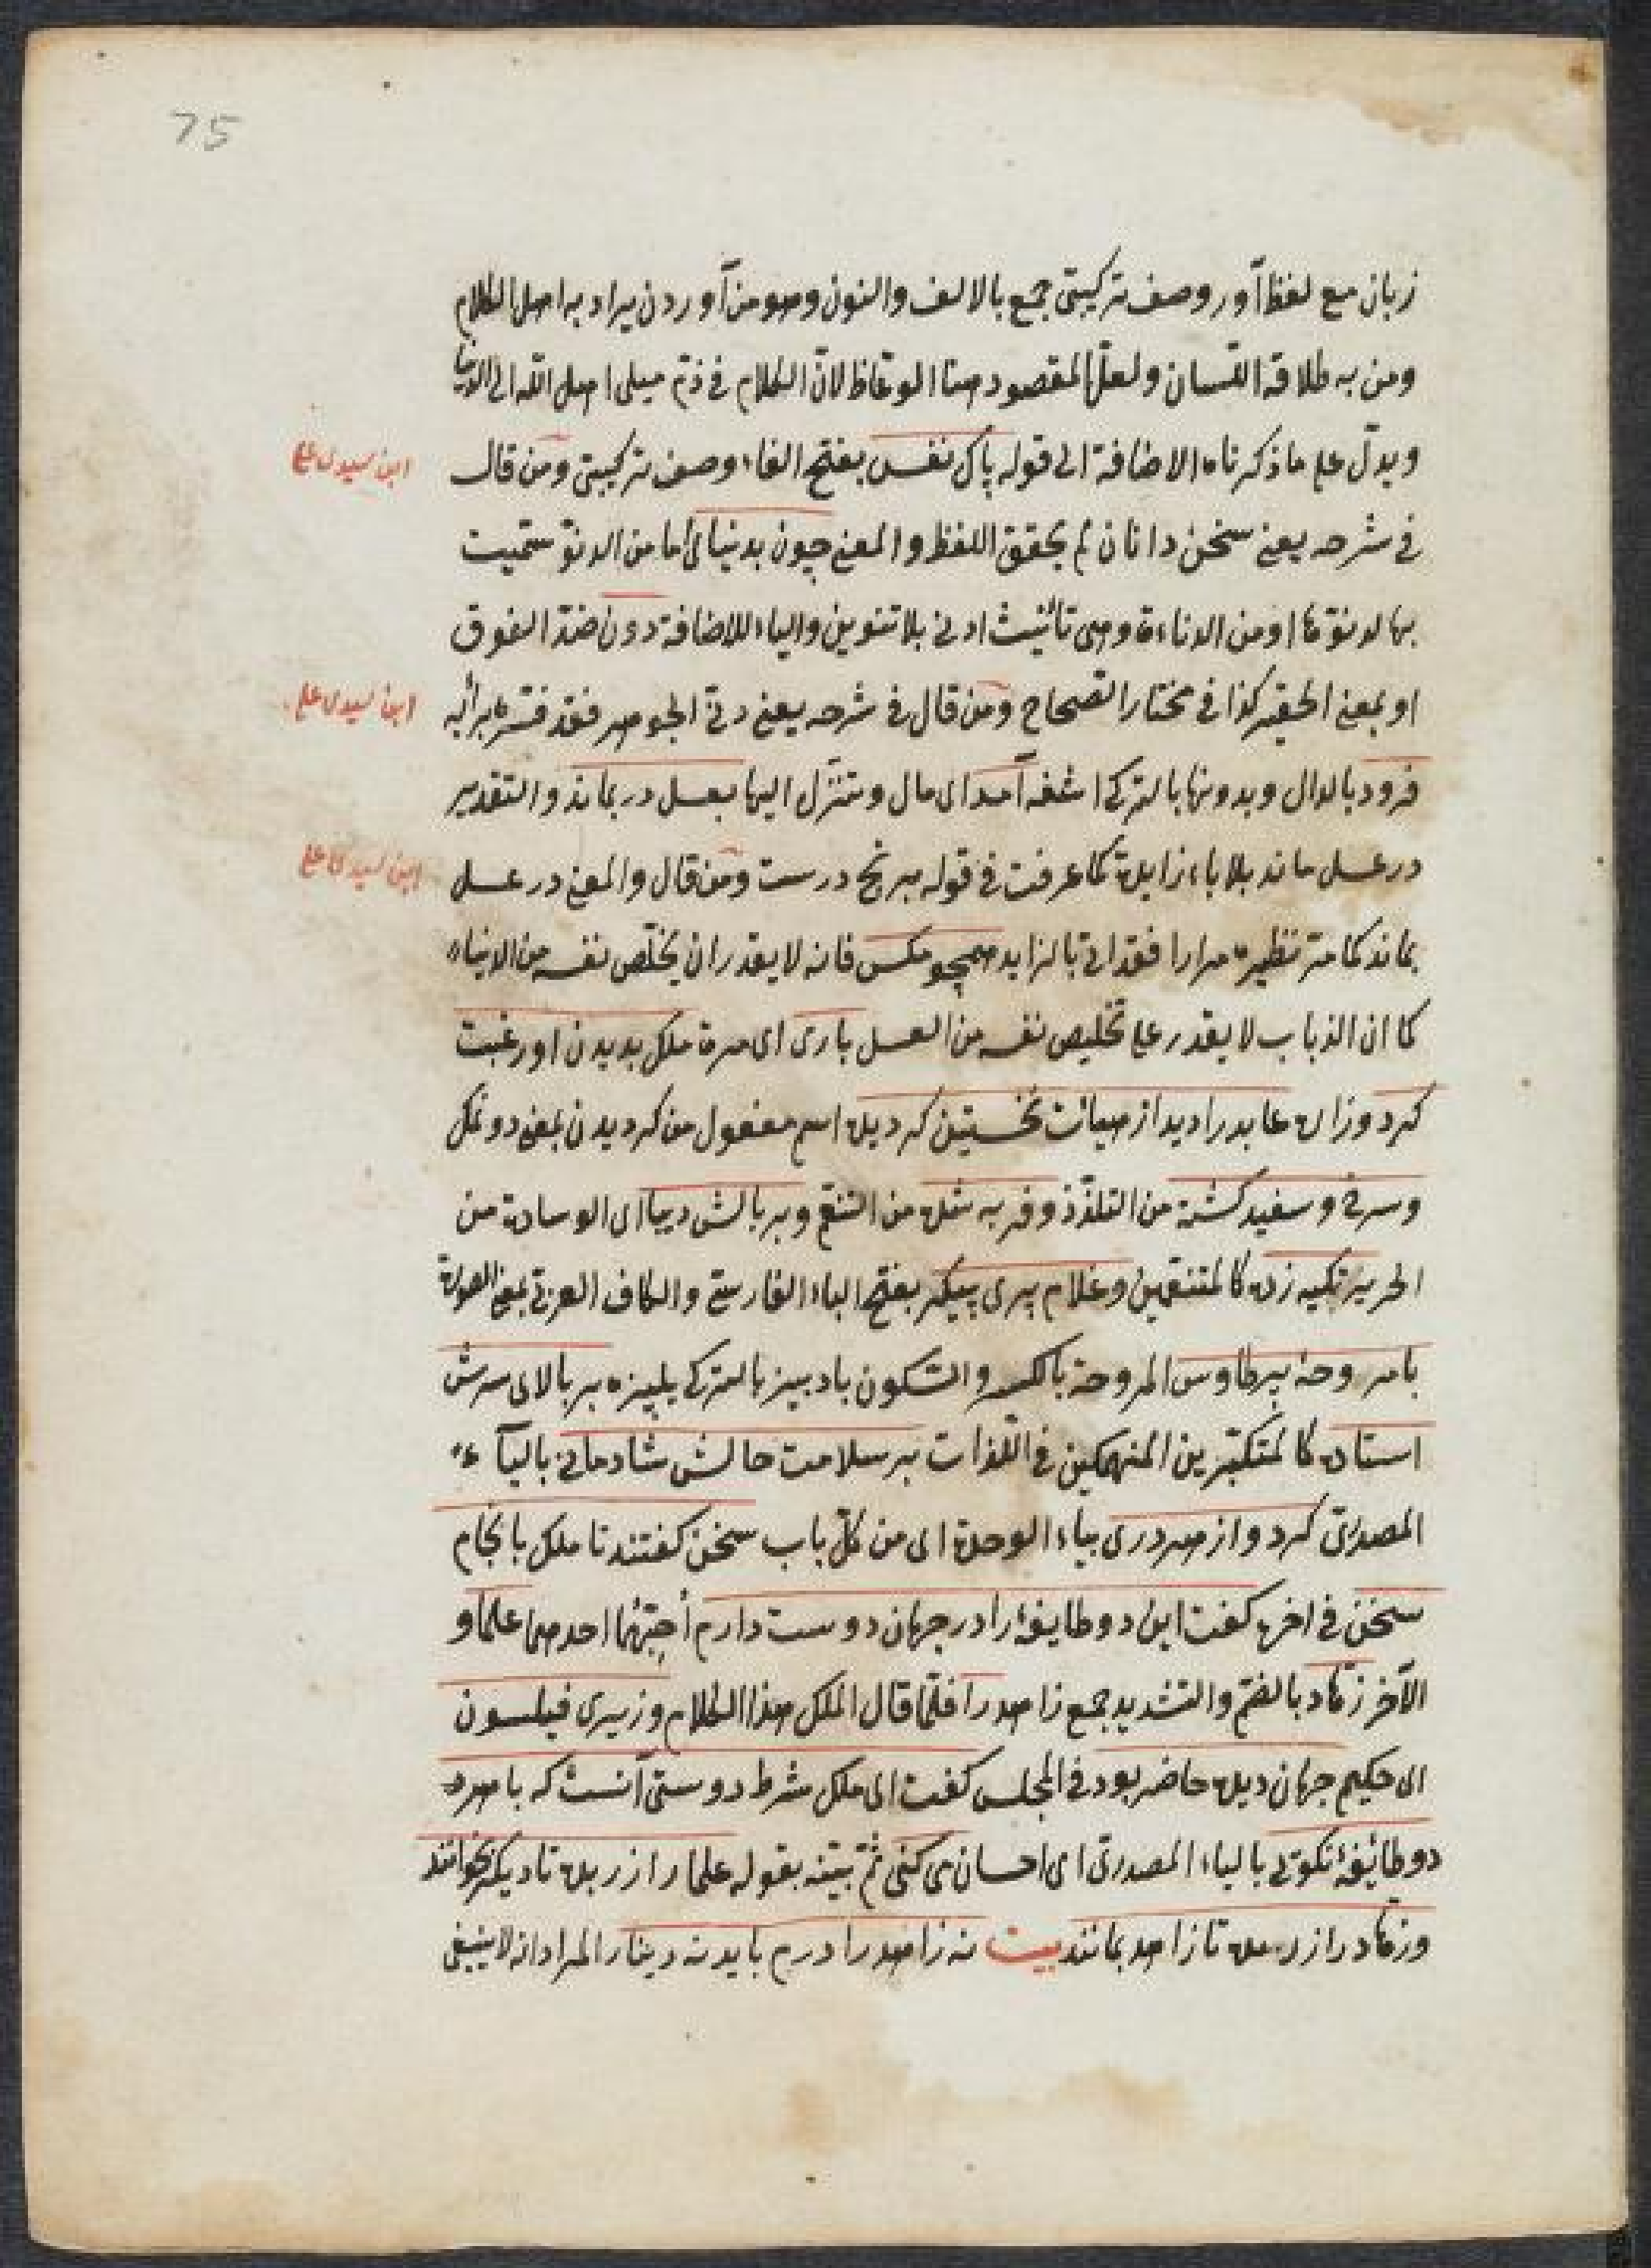 75
زبان مع لفظ آور وصف تركيبي جمع بالالف والنون وهو من آوردن يراد به اهل الكلام
ومن به طلاقة اللسان ولعل المقصود هنا الوعّاظ لانّ الكلام في ذمّ ميل اهل الله الى الدنيا
ويدلّ على ما ذكرناه الاضافة الى قوله پاك نفس بفتح الفاء وصف تركيبي ومن قال
ابن سيدى على
في شرحه يعني سخن دانان لم يحقق اللفظ والمعنى چون بدنياى اما من الدنوّ سميت
بها لدنوّها او من الدناءة وهى تأنيث ادنى بلا تنوين والياء للاضافة دون ضدّ الفوق
او بمعنى الحقير كذا في مختار الصحاح ومن قال في شرحه يعني دنى الجوهر فقد فسّره برأيه
ابن سيدى على
فرود بالدال وبدونها بالتركى اشغه آمد اى مال وتنزّل اليها بعسل در بماند والتقدير
در عسل ماند بلا باء زايدة كما عرفت في قوله برنج درست ومن قال والمعنى در عسل
ابن سيدى على
بماند كما مرّ نظيره مرارا فقد اتى بالزايد همچو مكس فانه لا يقدر ان يخلّص نفسه من الدنياء
كما ان الذباب لا يقدر على تخليص نفسه من العسل بارى اى مرة ملك بديدن او رغبت
كرد وزان عابد را ديد از هيأت نخستين كرديده اسم مفعول من كرديدن بمعنى دونمك
وسرخ وسفيد كشته من التلذّذ وفربه شده من التنعّم وبر بالش ديبا اى الوسادة من
الحرير تكيه زده كالمتنعمين وغلام پرى پيكر بفتح الباء الفارسى والكاف العربى بمعنى الصورة
با مروحهٔ پر طاوس المروحة بالكسر والسكون بادبيز بالتركى يلپزه بر بالاى سرش
استاده كالمتكبّرين المنهمكين في اللّذات بر سلامت حالش شادمانى بالياء
المصدرى كرد واز هر درى بياء الوحدة اى من كلّ باب سخن كفتند تا ملك بانجام
سخن في اخره كفت اين دو طايفه را در جهان دوست دارم أحبّهما احدهما علما و
الآخر زهّاد بالضم والتشديد جمع زاهد را فلمّا قال الملك هذا الكلام وزيرى فيلسون
اى حكيم جهان ديده حاضر بود في المجلس كفت اى ملك شرط دوستى آنست كه با هر
دو طائفه نكويى بالياء المصدرى اى احسان مى كنى ثمّ بيّنه بقوله علما را زر بده تا ديكر بخوانند
وزهّاد را زر مده تا زاهد بمانند بيت نه زاهد را درم بايد نه دينار المراد انه لا ينبغى